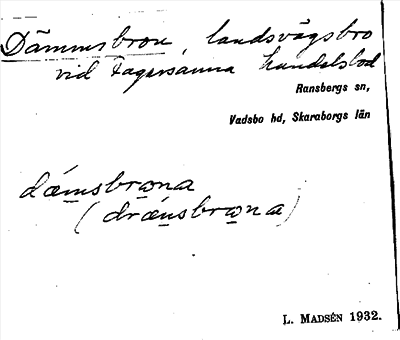 Dämmsbron, landsvägsbro
vid Fagersanna handelsbod
Ransbergs sn,
Vadsbo hd, Skaraborgs län
dǽmsbrωna
(drǽnsbrωna)
L. MADSÉN 1932.